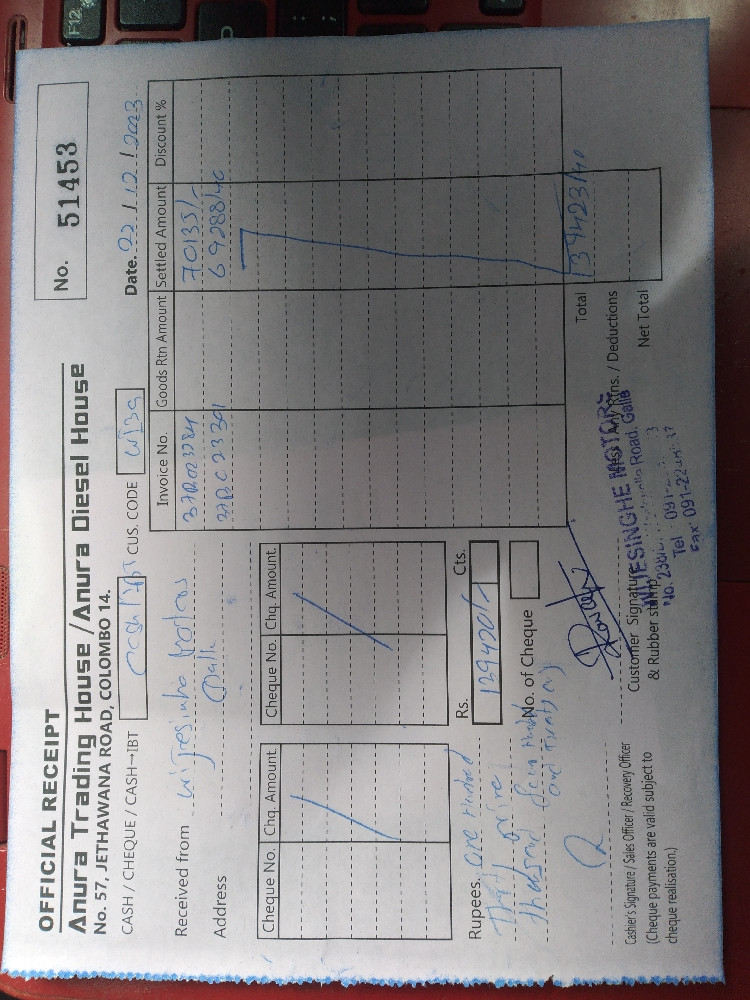 OFFICIAL RECEIPT
No. 51453
Anura Trading House /Anura Diesel House
No. 57, JETHAWANA ROAD, COLOMBO 14.
Date. 02 / 12 / 2023
CASH / CHEQUE / CASH→IBT CUS. CODE
Received from
Address Galle
Invoice No. Goods Rtn Amount Settled Amount Discount %
70135/-
69288/40
Total 139423/40
Any Rtns. / Deductions
Net Total
Cheque No. Chq. Amount. Cheque No. Chq. Amount.
Rs. Cts.
139420/-
Rupees. one Hundred
Thirty nine
Thousand Four Hundred
and Twenty
No. of Cheque
Cashier's Signature / Sales Officer / Recovery Officer
(Cheque payments are valid subject to
cheque realisation.)
Customer Signature
& Rubber stamp
WIJESINGHE MOTORS
Road, Galle
Tel
Fax
F12